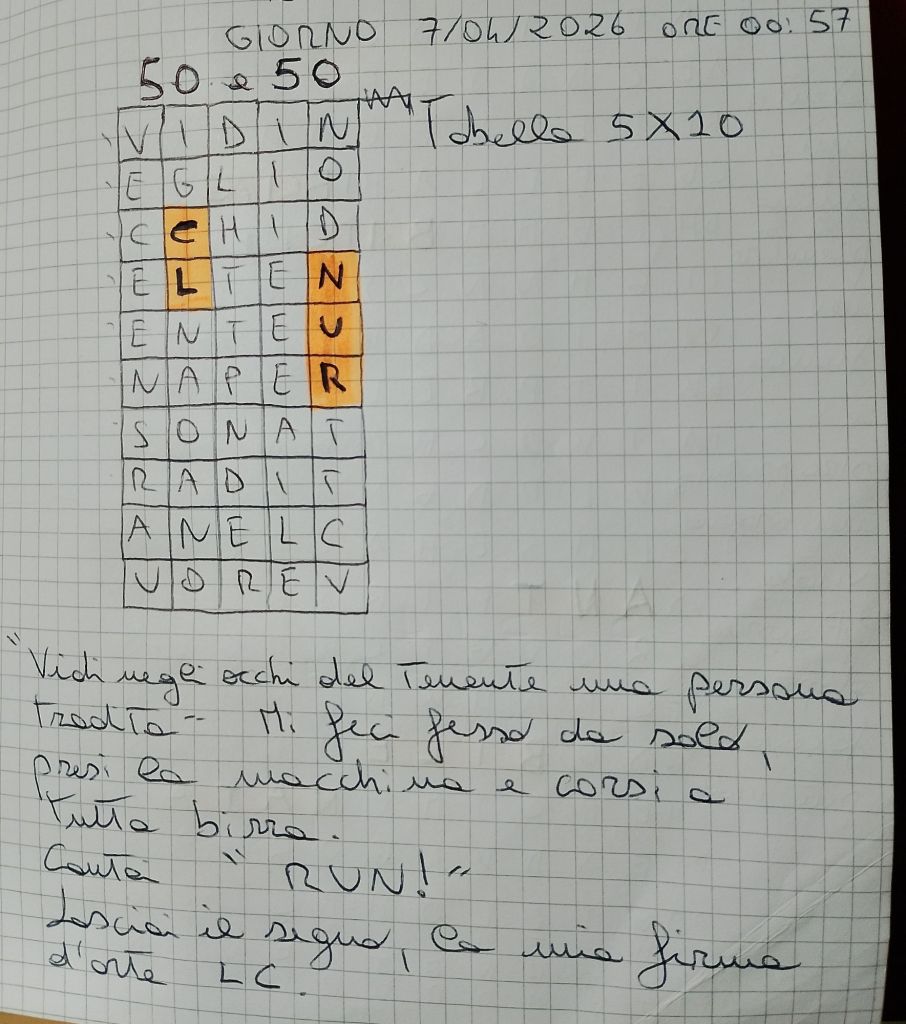 GIORNO 7/04/2026 ORE 00:57
50 e 50
Tabella 5X10
V I D I N
E G L I O
C C H I D
E L T E N
E N T E U
N A P E R
S O N A T
R A D I T
A N E L C
U O R E V
"Vidi negli occhi del Tenente una persona
tradita" Mi feci fesso da solo,
presi la macchina e corsi a
tutta birra.
Cantai "RUN!"
Lasciai il segno, la mia firma
d'arte LC.